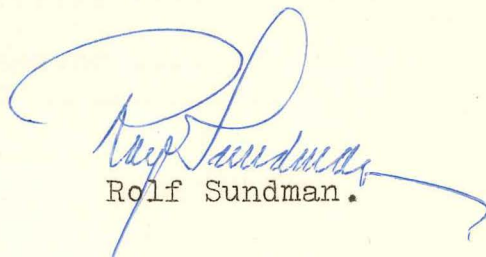 Rolf Sundman
Rolf Sundman.